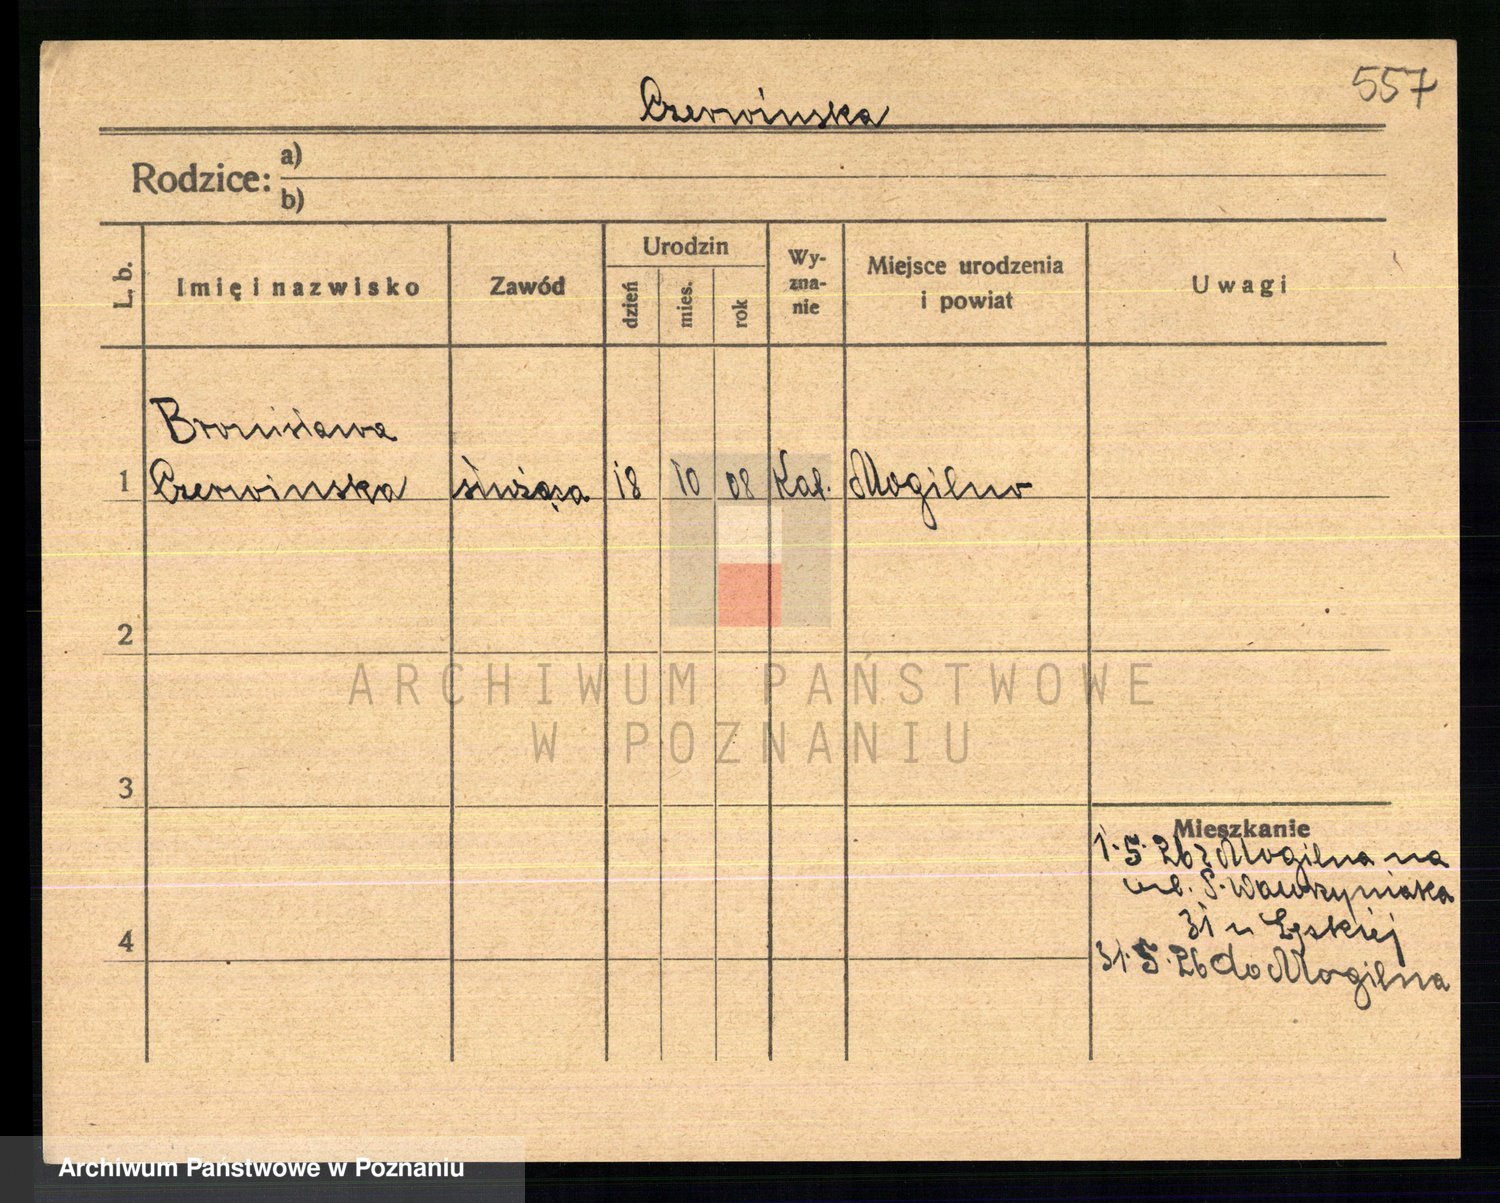 557
Czerwinska
Rodzice: a)
b)
L. b.
Imię i nazwisko
Zawód
Urodzin
dzień
mies.
rok
Wy-
zna-
nie
Miejsce urodzenia
i powiat
Uwagi
Bronisława
1 Czerwinska służąca 18 10 08 Kat. Mogilno
2
ARCHIWUM PAŃSTWOWE
W POZNANIU
3
Mieszkanie
1.5.26 z Mogilna na
ul. P. Wawrzyniaka
31 u
4
31.5.26 do Mogilna
Archiwum Państwowe w Poznaniu